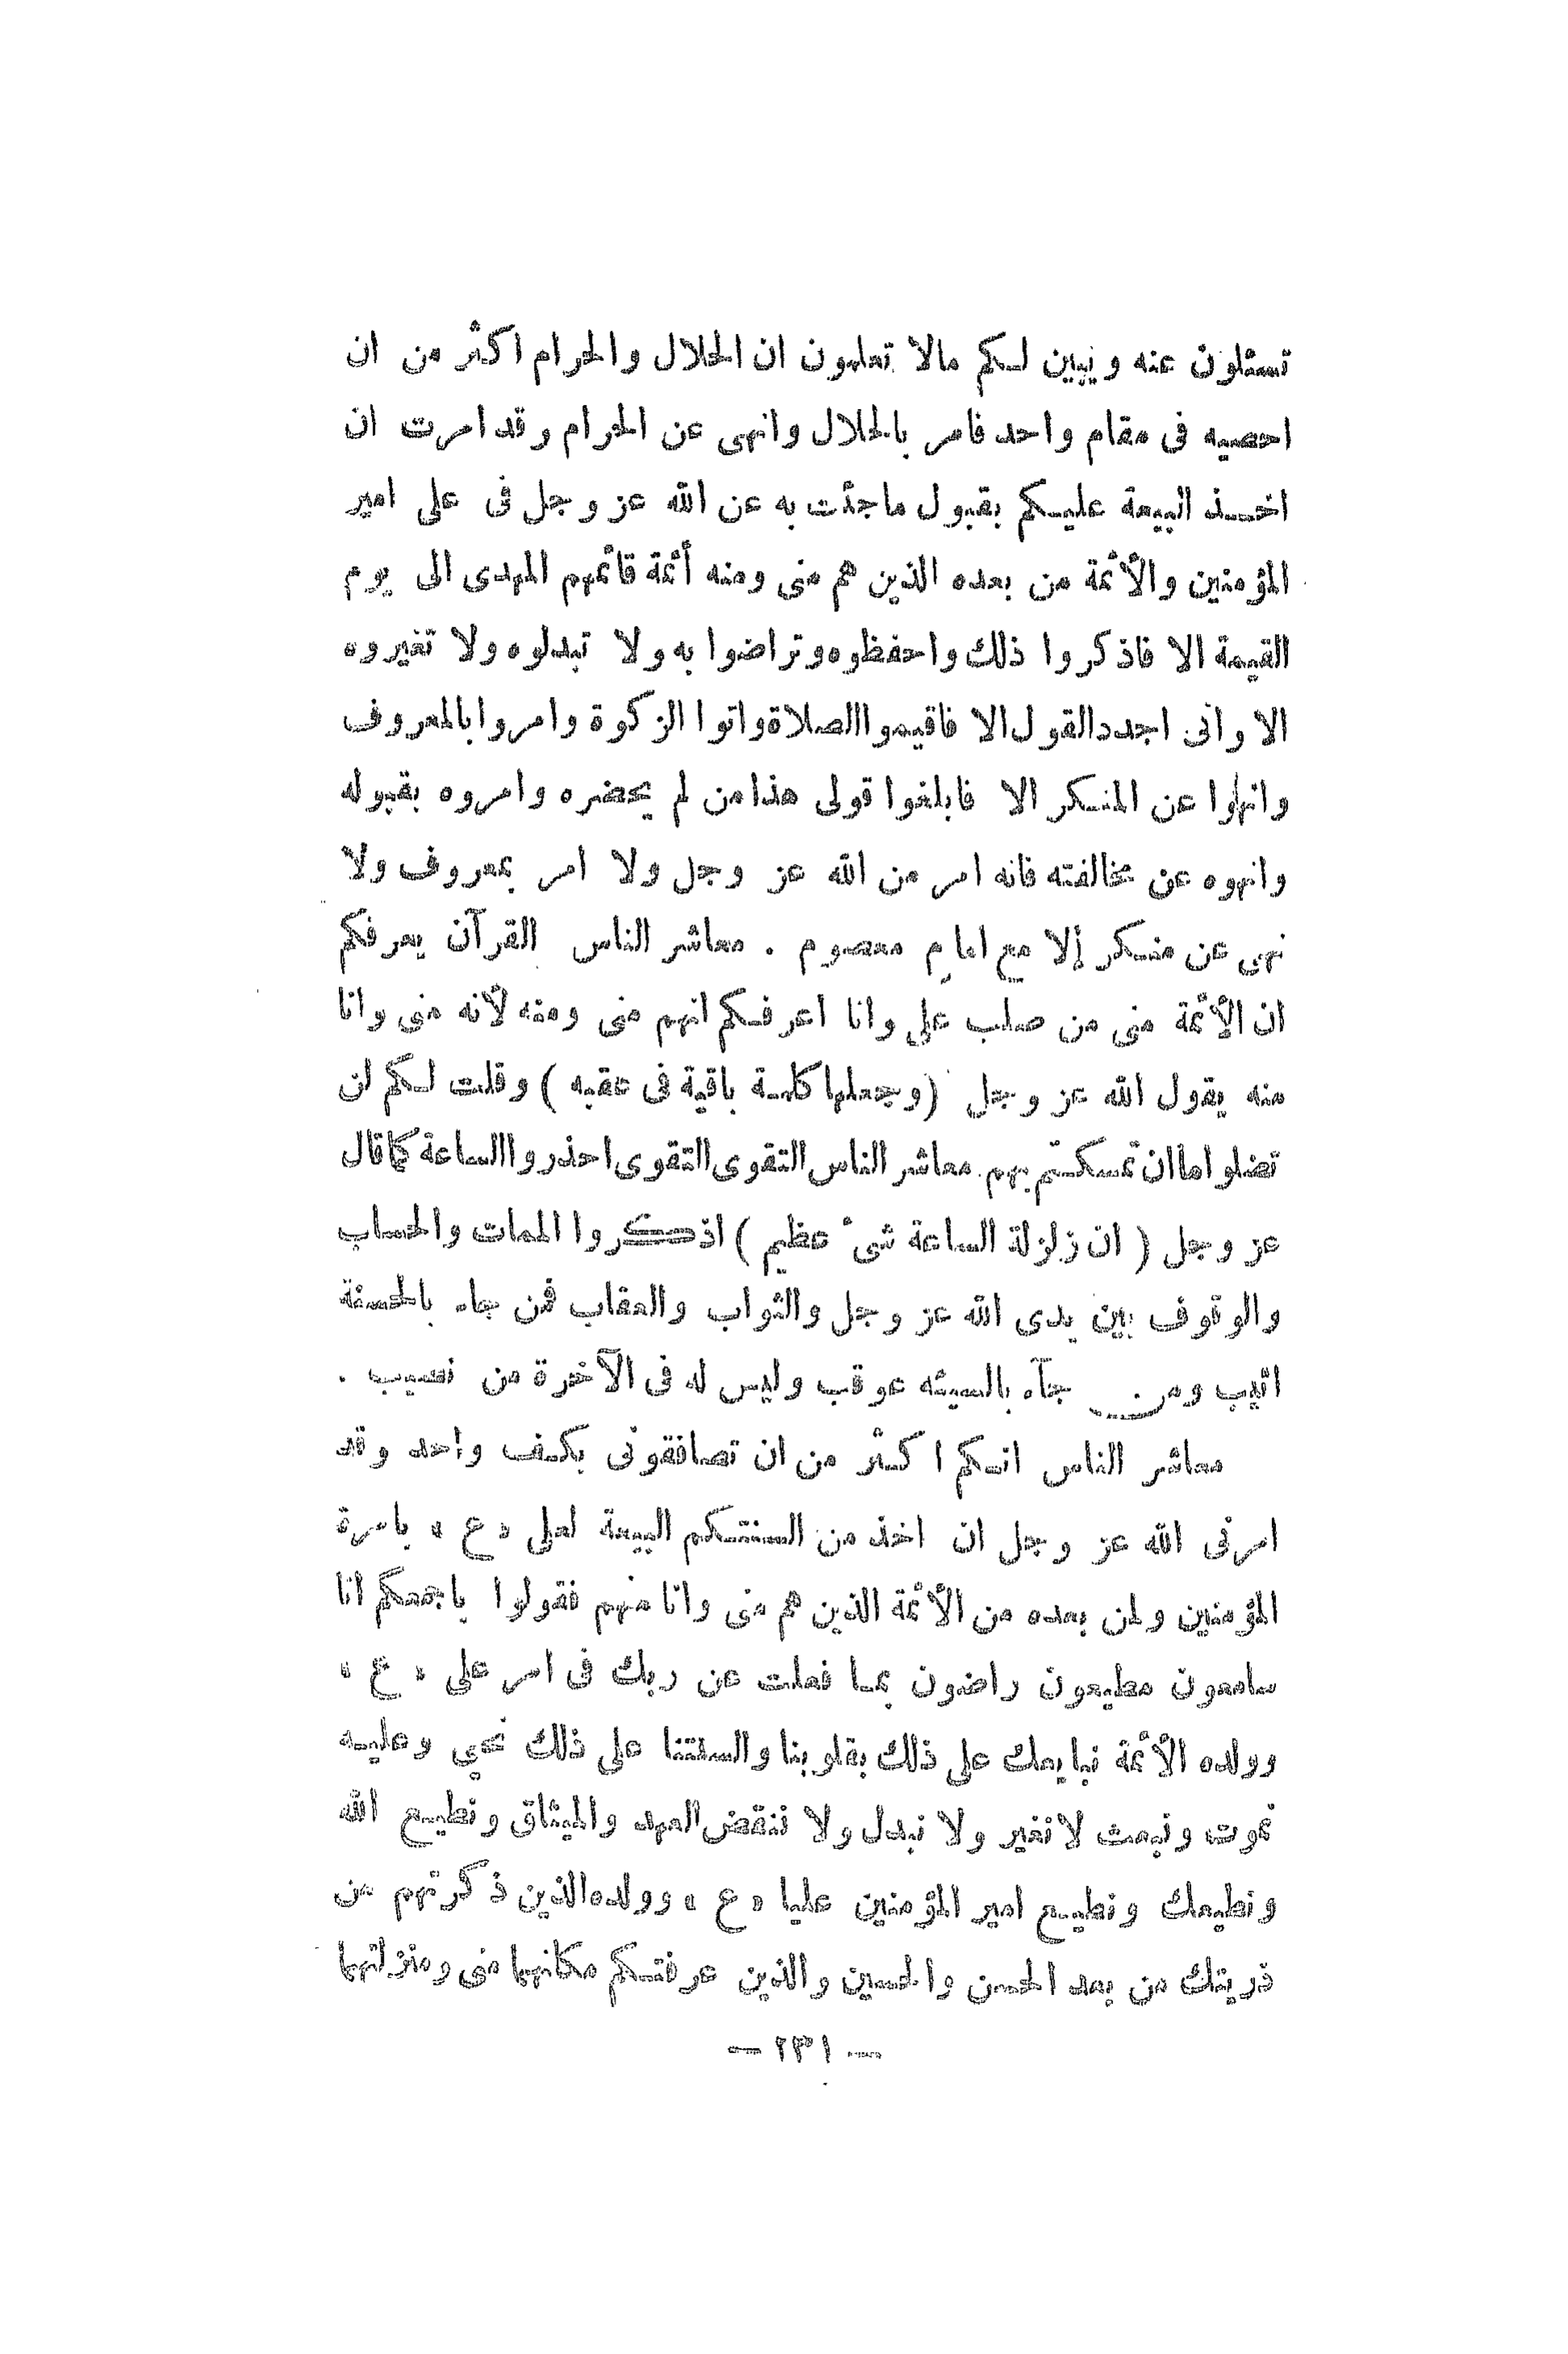 تسئلون عنه ويبين لكم مالا تعلمون ان الحلال والحرام اكثر من ان
احصيه في مقام واحد فامر بالحلال وانهى عن الحرام وقد امرت ان
اخذ البيعة عليكم بقبول ماجئت به عن الله عز وجل في على امير
المؤمنين والأئمة من بعده الذين هم منى ومنه أئمة قائمهم المهدى الى يوم
القيمة الا فاذكروا ذلك واحفظوه وتراضوا به ولا تبدلوه ولا تغيروه
الا وانى اجدد القول الا فاقيموا الصلاة واتوا الزكوة وامروا بالمعروف
وانهوا عن المنكر الا فابلغوا قولى هذا من لم يحضره وامروه بقبوله
وانهوه عن مخالفته فانه امر من الله عز وجل ولا امر بمعروف ولا
نهى عن منكر إلا مع امام معصوم . معاشر الناس القرآن يعرفكم
ان الأئمة منى من صلب على وانا اعرفكم انهم منى ومنه لأنه منى وانا
منه يقول الله عز وجل (وجعلها كلمة باقية في عقبه) وقلت لكم لن
تضلوا ما ان تمسكتم بهم معاشر الناس التقوى التقوى احذروا الساعة كما قال
عز وجل (ان زلزلة الساعة شىء عظيم) اذكروا الممات والحساب
والوقوف بين يدى الله عز وجل والثواب والعقاب فمن جاء بالحسنة
اثيب ومن جآء بالسيئه عوقب وليس له فى الآخرة من نصيب .
معاشر الناس انكم اكثر من ان تصافقونى بكف واحد وقد
امرنى الله عز وجل ان اخذ من السنتكم البيعة لعلى «ع» بامرة
المؤمنين ولمن بعده من الأئمة الذين هم منى وانا منهم فقولوا باجمعكم انا
سامعون مطيعون راضون بما فعلت عن ربك فى امر على «ع»
وولده الأئمة نبايعك على ذلك بقلوبنا والسنتنا على ذلك نحيي وعليه
نموت ونبعث لا نغير ولا نبدل ولا ننقض العهد والميثاق ونطيع الله
ونطيعك ونطيع امير المؤمنين عليا «ع» وولده الذين ذكرتهم من
ذريتك من بعد الحسن والحسين والذين عرفتكم مكانهما منى ومنزلتهما
— ٢٣١ —